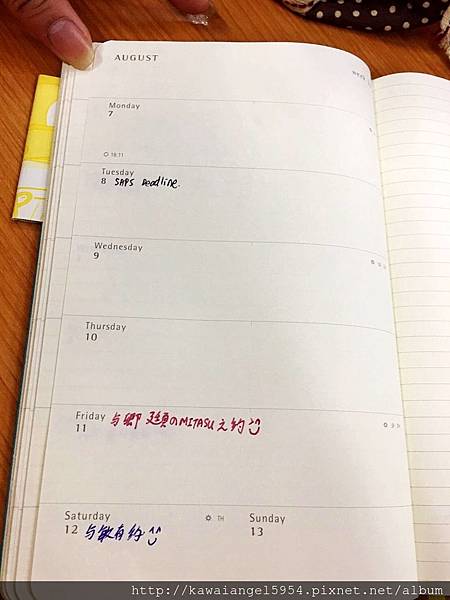 AUGUST
Monday
7
18:11
Tuesday
8 SAPS Deadline.
Wednesday
9
Thursday
10
Friday
11 与卿 のMITASU之約
Saturday
TH
12 与敏有約
Sunday
13
http://kawaiangel5954.pixnet.net/album